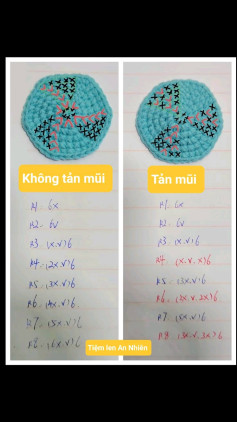 Không tản mũi
R1. 6x
R2. 6V
R3. (X.V)6
R4. (2X.V)6
R5. (3X.V)6
R6. (4X.V)6
R7. (5X.V)6
R8. (6X.V)6
Tản mũi
R1. 6x
R2. 6V
R3. (X.V)6
R4. (X.V.X)6
R5. (3X.V)6
R6. (2X.V.2X)6
R7. (5X.V)6
R8. (3X.V.3X)6
Tiệm len An Nhiên